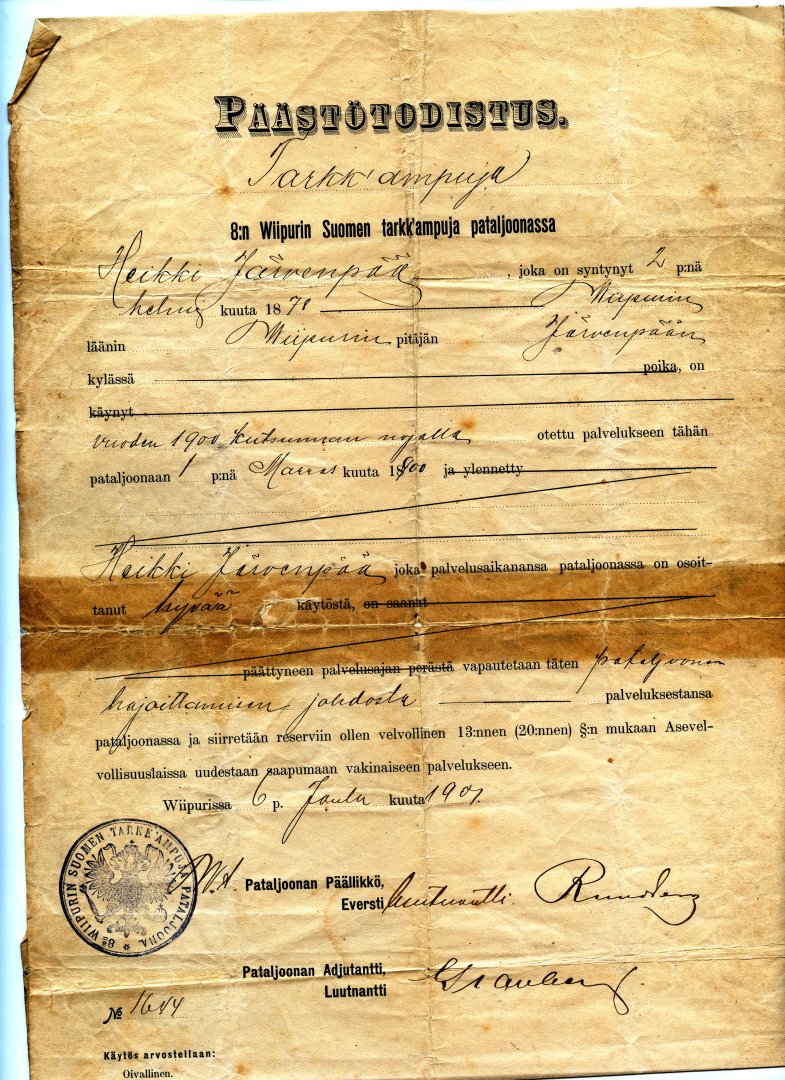 PÄÄSTÖTODISTUS.
Tarkk'ampuja
8:n Wiipurin Suomen tarkk'ampuja pataljoonassa
Heikki Järvenpää, joka on syntynyt 2 p:nä
helmi kuuta 187 Wiipurin
läänin Wiipurin pitäjän Järvenpään
kylässä poika, on
käynyt
vuoden 1900 kutsunnan nojalla otettu palvelukseen tähän
pataljoonaan 1 p:nä Marras kuuta 1900 ja ylennetty
Heikki Järvenpää joka palvelusaikanansa pataljoonassa on osoit-
tanut hyvää käytöstä, on saanut
päättyneen palvelusajan perästä vapautetaan täten pataljoonan
hajoittamisen johdosta palveluksestansa
pataljoonassa ja siirretään reserviin ollen velvollinen 13:nnen (20:nnen) §:n mukaan Asevel-
vollisuuslaissa uudestaan saapumaan vakinaiseen palvelukseen.
Wiipurissa 6 p. Joulu kuuta 1901.
8s WIIPURIN SUOMEN TARKK'AMPUJA PATALJOONA
Pataljoonan Päällikkö,
Eversti luutnantti
Pataljoonan Adjutantti,
Luutnantti
№ 1644
Käytös arvostellaan:
Oivallinen.